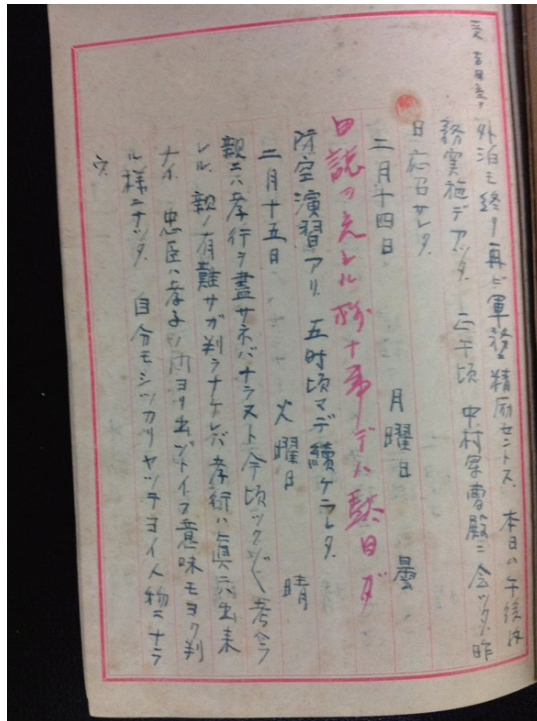 外泊モ終リ再ビ軍務ニ精励セントス、本日ハ午後内
務実施デアッタ、正午頃 中村軍曹殿ニ会ッタ、昨
日応召サレタ、
二月十四日 月曜日 曇
日誌ヲ忘レル様十事デハ駄目ダ
防空演習アリ、五時頃マデ續ケラレタ、
二月十五日 火曜日 晴
親ニハ孝行ヲ盡サネバナラヌト今頃ツクヅク考ヘラ
レル、親ノ有難サガ判ラナケレバ孝行ハ真ニ出来
ナイ、忠臣ハ孝子ノ門ヨリ出ヅトイフ意味モヨク判
ル様ニナッタ、自分モシッカリヤッテヨイ人物ニナラ
ウ、